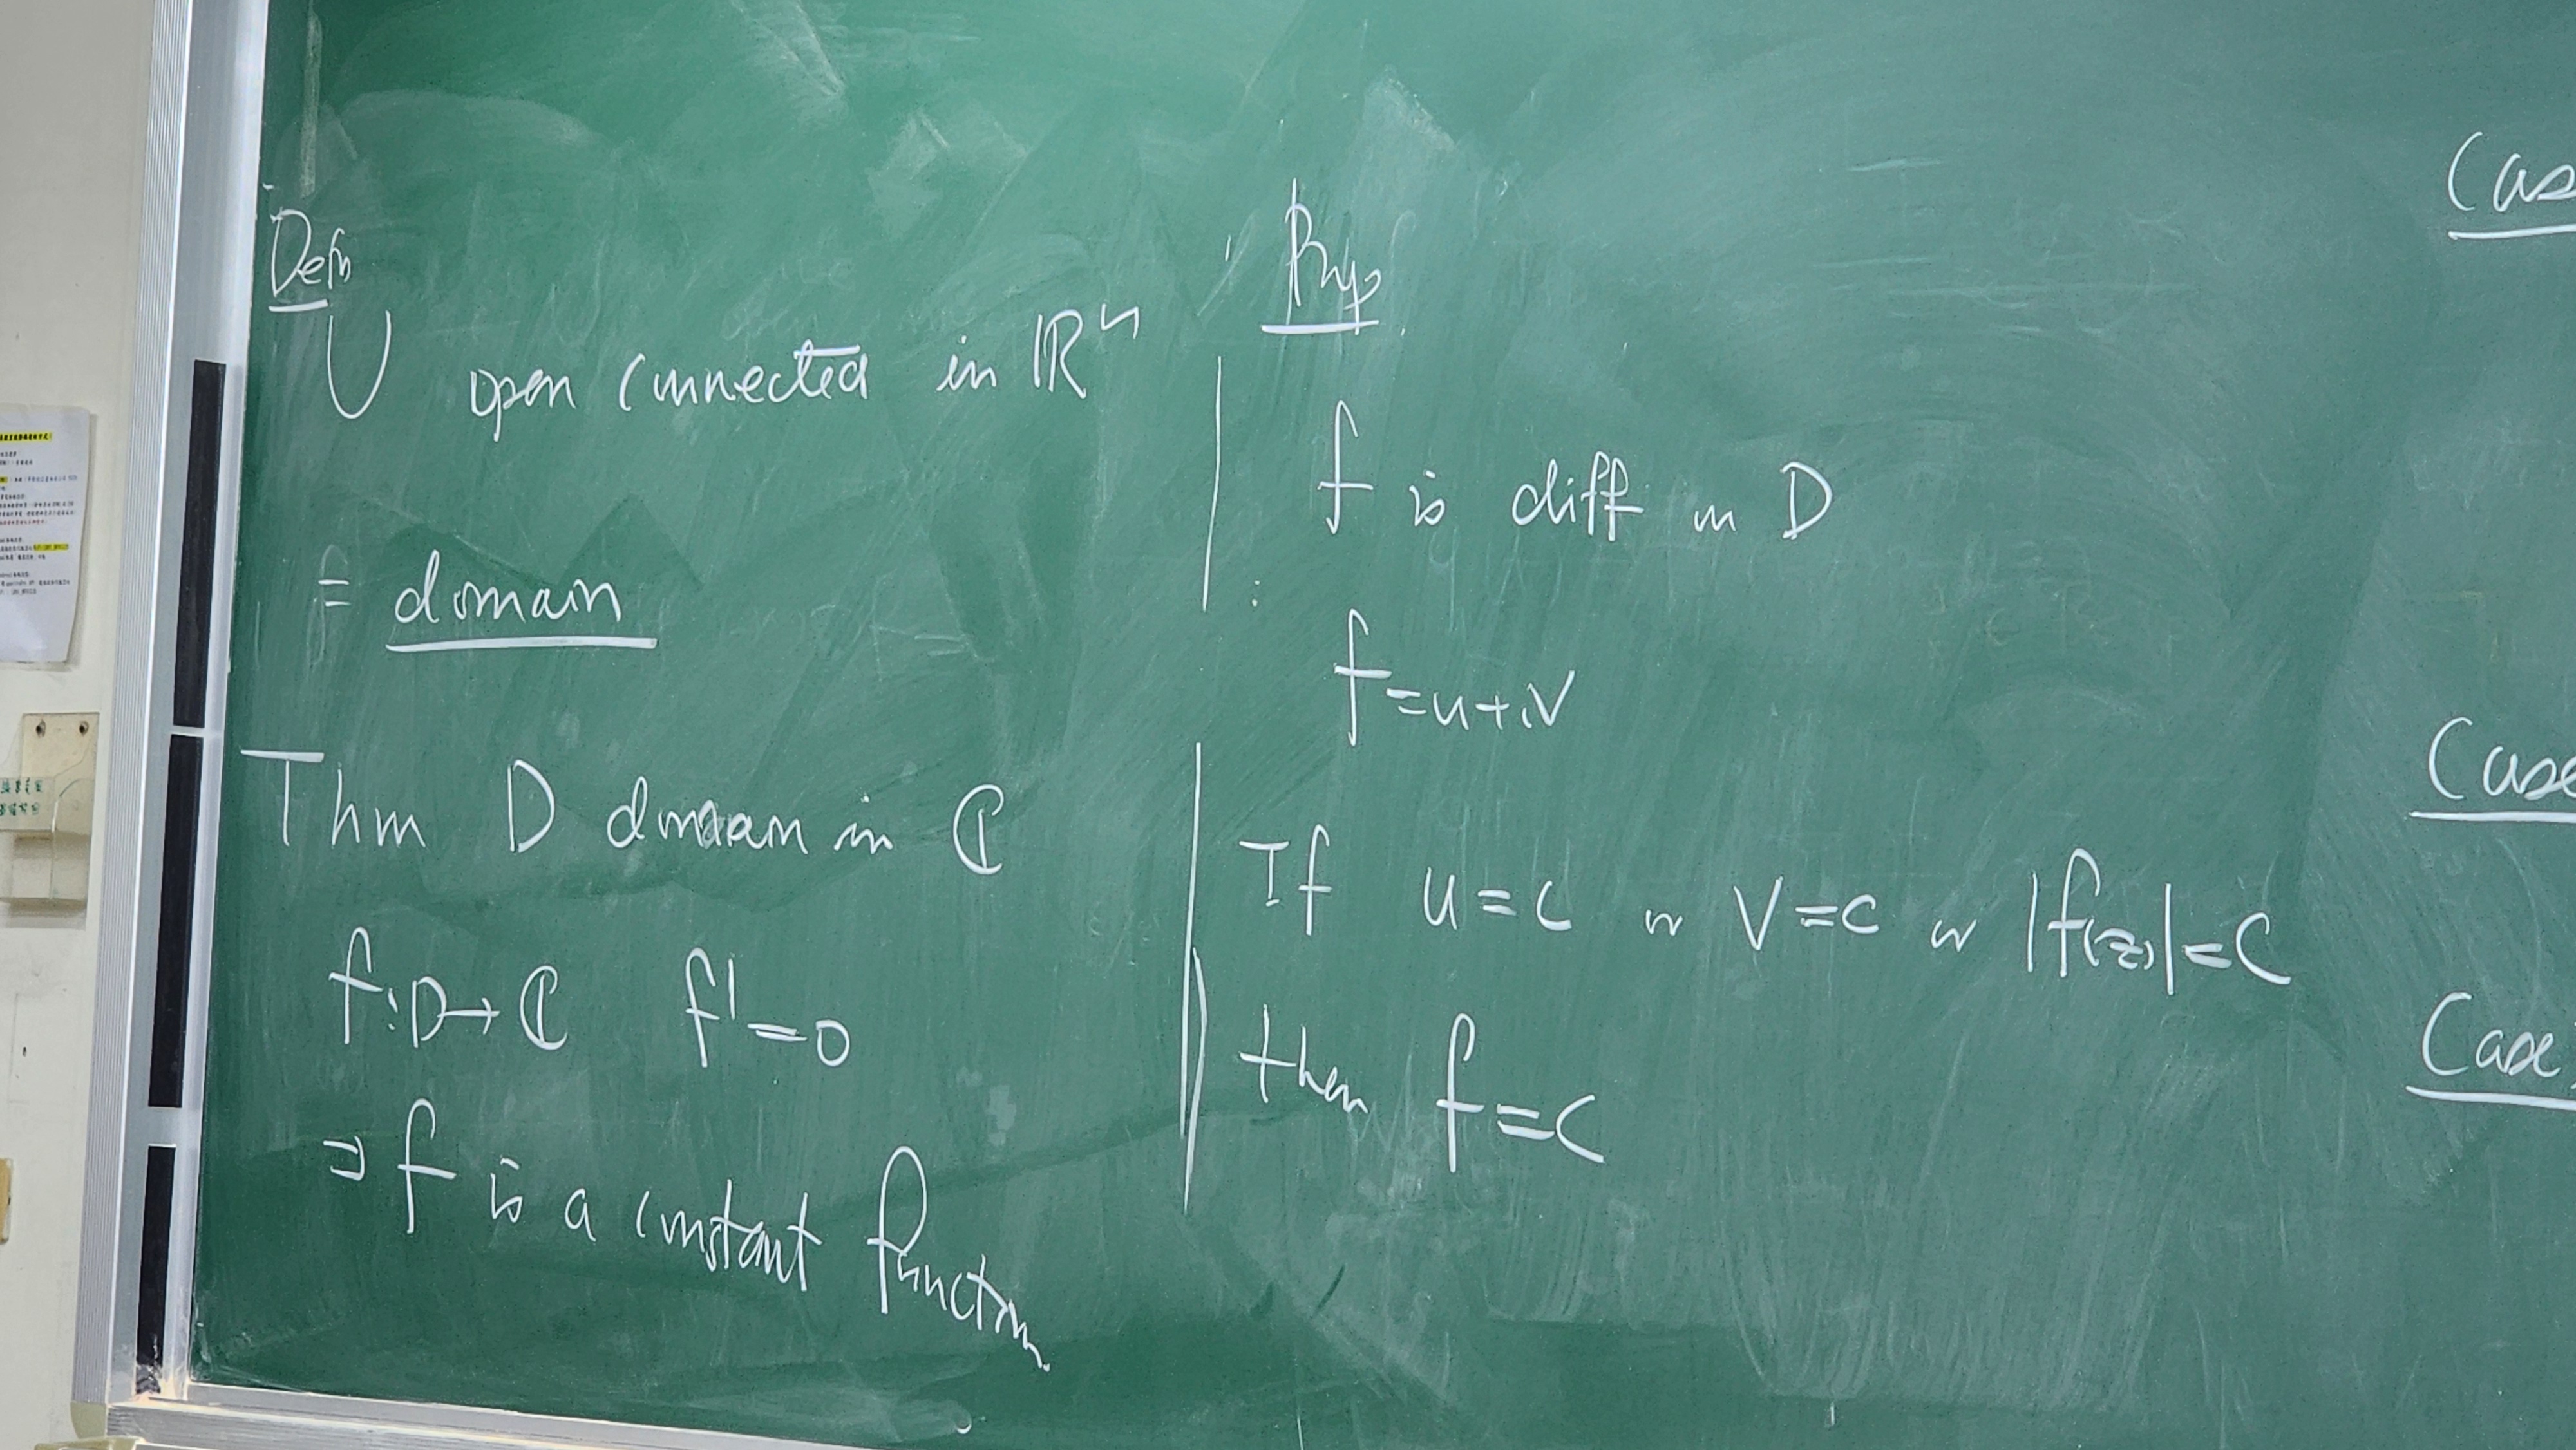 Defn
U open connected in ℝⁿ
= domain
Thm D domain in ℂ
f: D → ℂ f' = 0
⇒ f is a constant function
Prop
f is diff in D
f = u + iv
If u = c or v = c or |f(z)| = c
then f = c
Case
Case